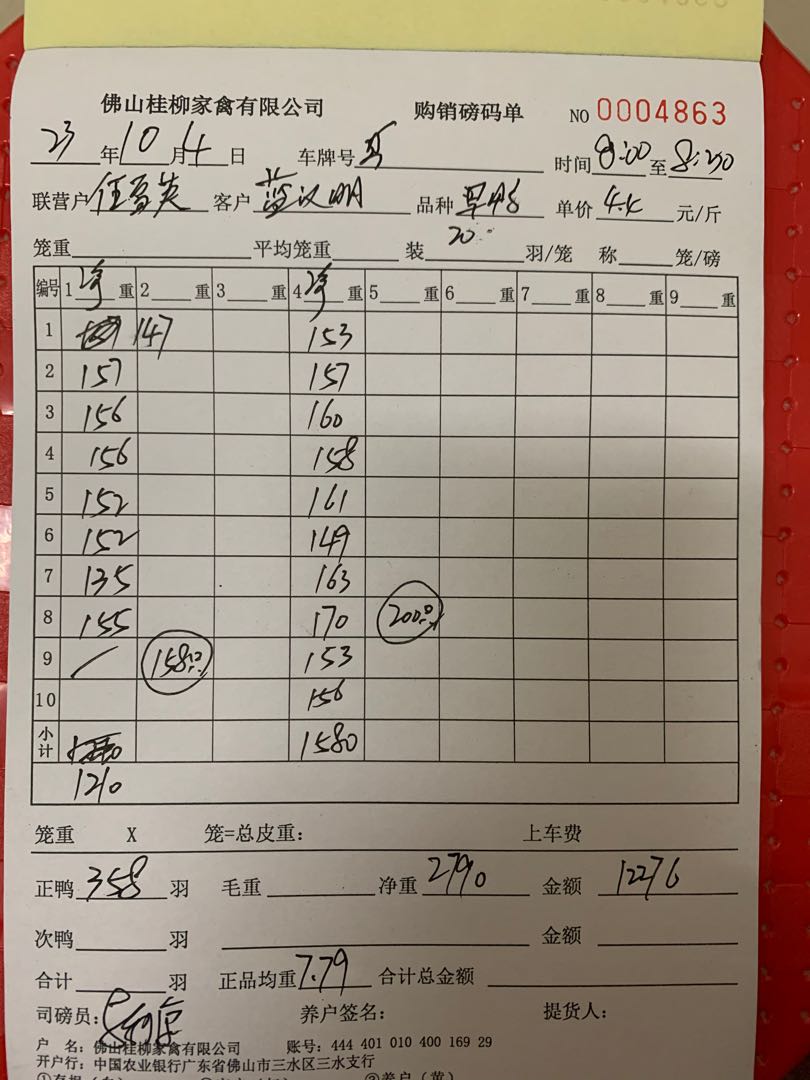 佛山桂柳家禽有限公司 购销磅码单 NO 0004863
23 年 10 月 4 日 车牌号 时间 8:00 至 8:30
联营户 任雪英 客户 蓝汉明 品种 旱鸭 单价 4.4 元/斤
笼重 平均笼重 装 20 羽/笼 称 笼/磅
编号 1 净 重 2 重 3 重 4 净 重 5 重 6 重 7 重 8 重 9 重
1 147 153
2 157 157
3 156 160
4 156 158
5 152 161
6 152 149
7 135 163
8 155 170 200
9 158 153
10 156
小计 1580
1210
笼重 X 笼=总皮重: 上车费
正鸭 358 羽 毛重 净重 2790 金额 12276
次鸭 羽 金额
合计 羽 正品均重 7.79 合计总金额
司磅员: 养户签名: 提货人:
户 名: 佛山桂柳家禽有限公司 账号: 444 401 010 400 169 29
开户行: 中国农业银行广东省佛山市三水区三水支行